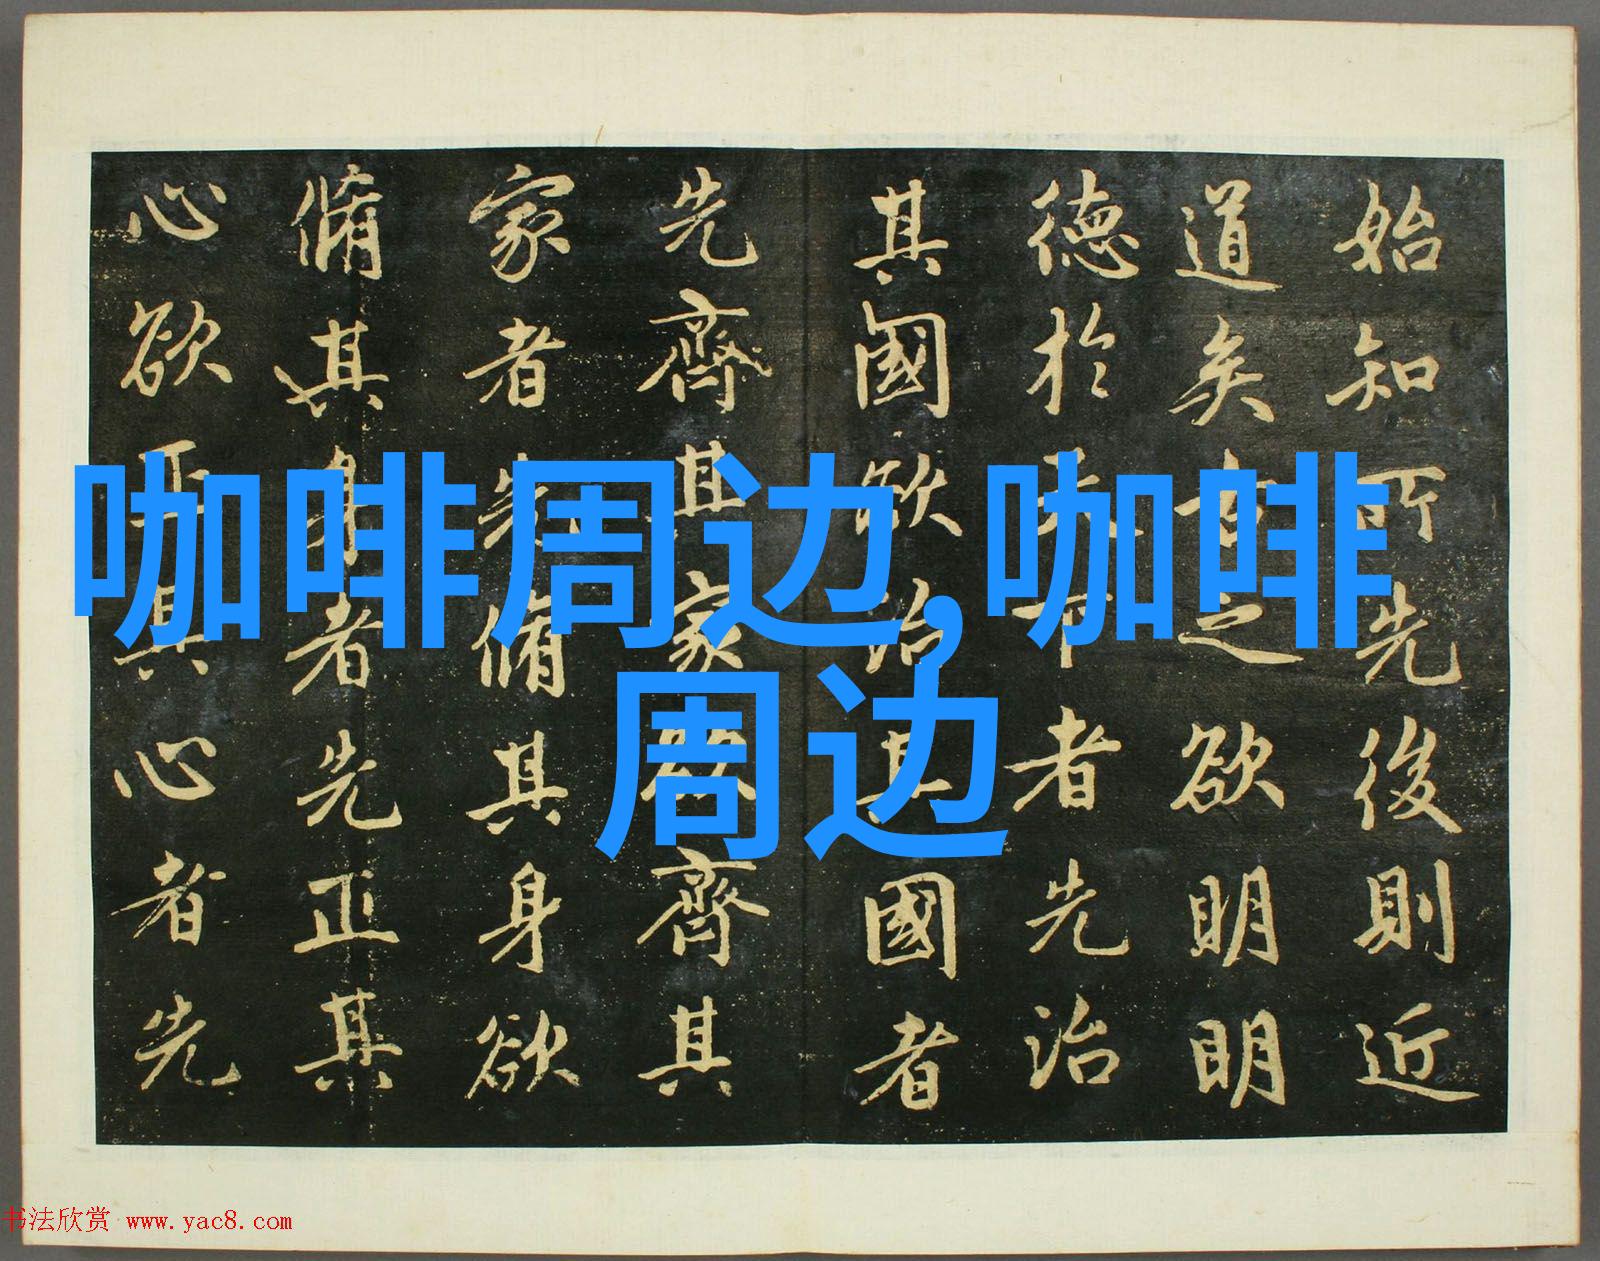 始知所先後則近
道矣古之欲明明
德於天下者先治
其國欲治其國者
先齊其家欲齊其
家者先脩其身欲
脩其身者先正其
心欲正其心者先
咖啡周边,咖啡
周边
书法欣赏 www.yac8.com